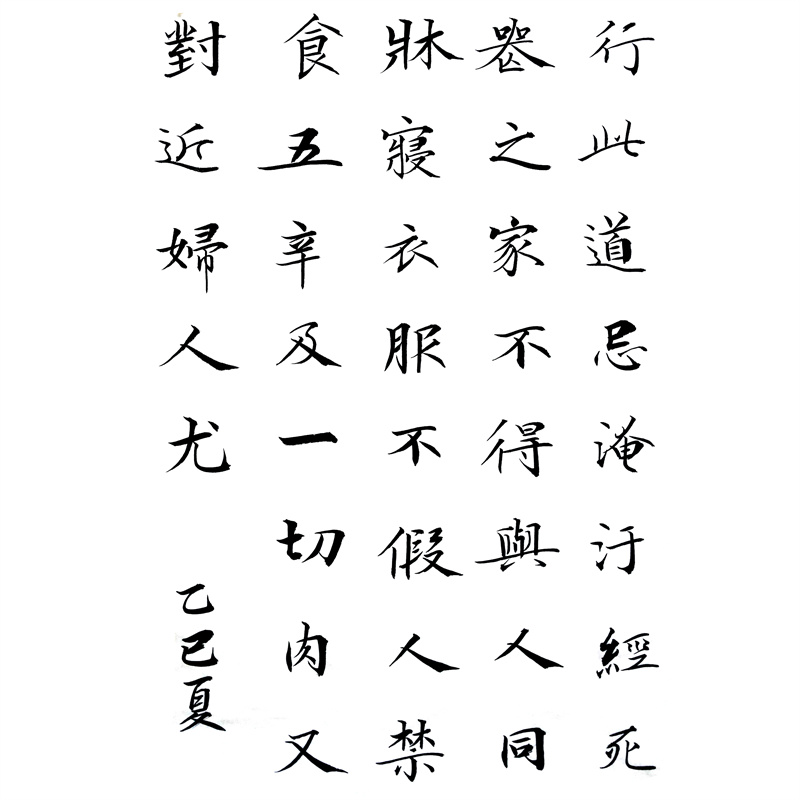 行此道忌淹汙經死
喪之家不得與人同
牀寢衣服不假人禁
食五辛及一切肉又
對近婦人尤
乙巳夏